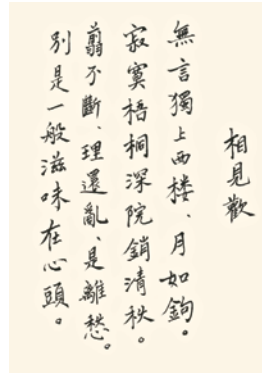 相見歡
無言獨上西楼、月如鉤。
寂寞梧桐深院銷清秋。
翦不斷、理還亂、是離愁。
別是一般滋味在心頭。